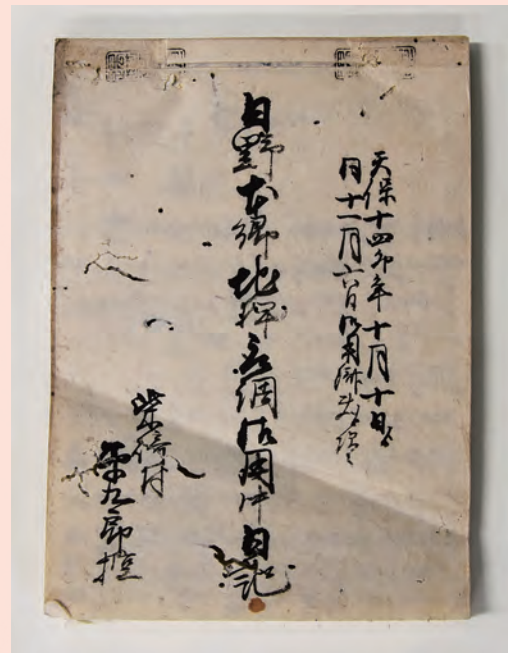 天保十四卯年十月十日ゟ
同十一月六日御用済
日野本郷地押取調御用中日記
柴崎村
平九郎控